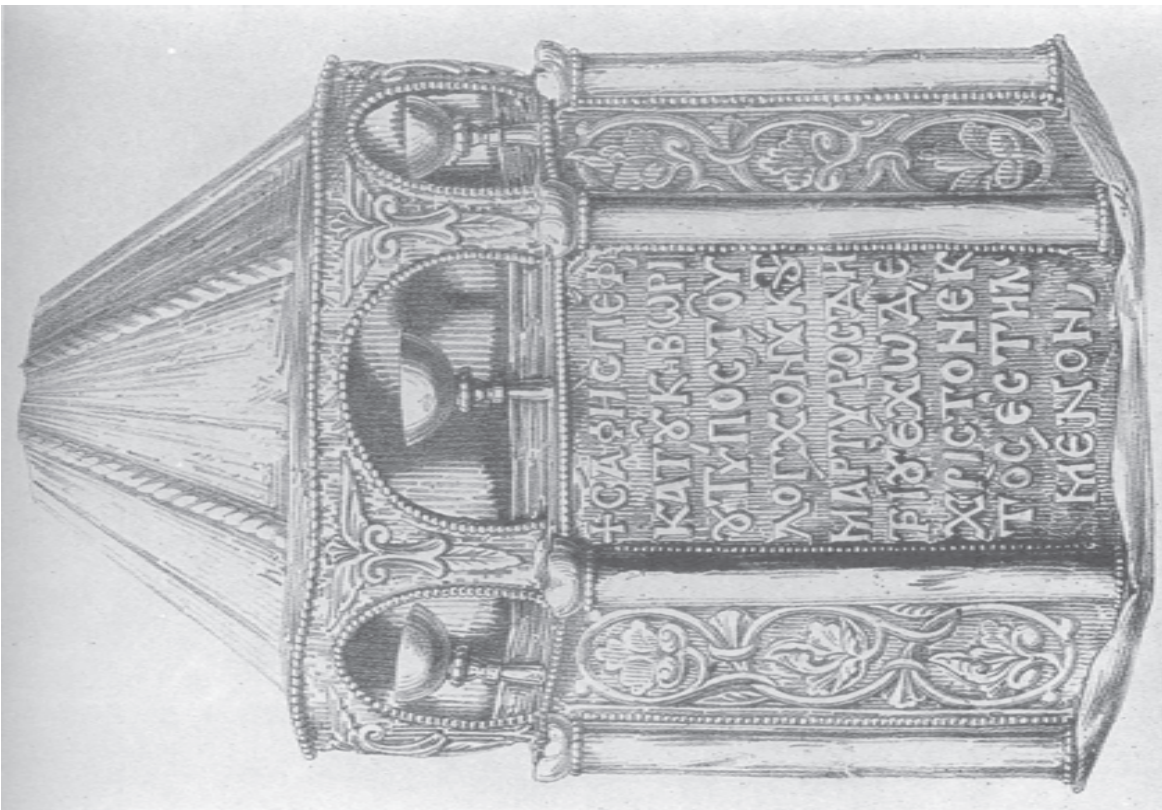 +CΑΦΗCΠΕΦ
ΚΑΤȢΚΗΒΩΡΙ
ȢΤΥΠΟCΤΟΥ
ΛΟΓΧΟΝΥΚΤȢ
ΜΑΡΤΥΡΟCΔΗ
ΤΡΙȢΕΧΩΔΕ
ΧΡΙCΤΟΝΕΚ
ΤΟCΕCΤΗΛ
ΜΕΝΟΝ,